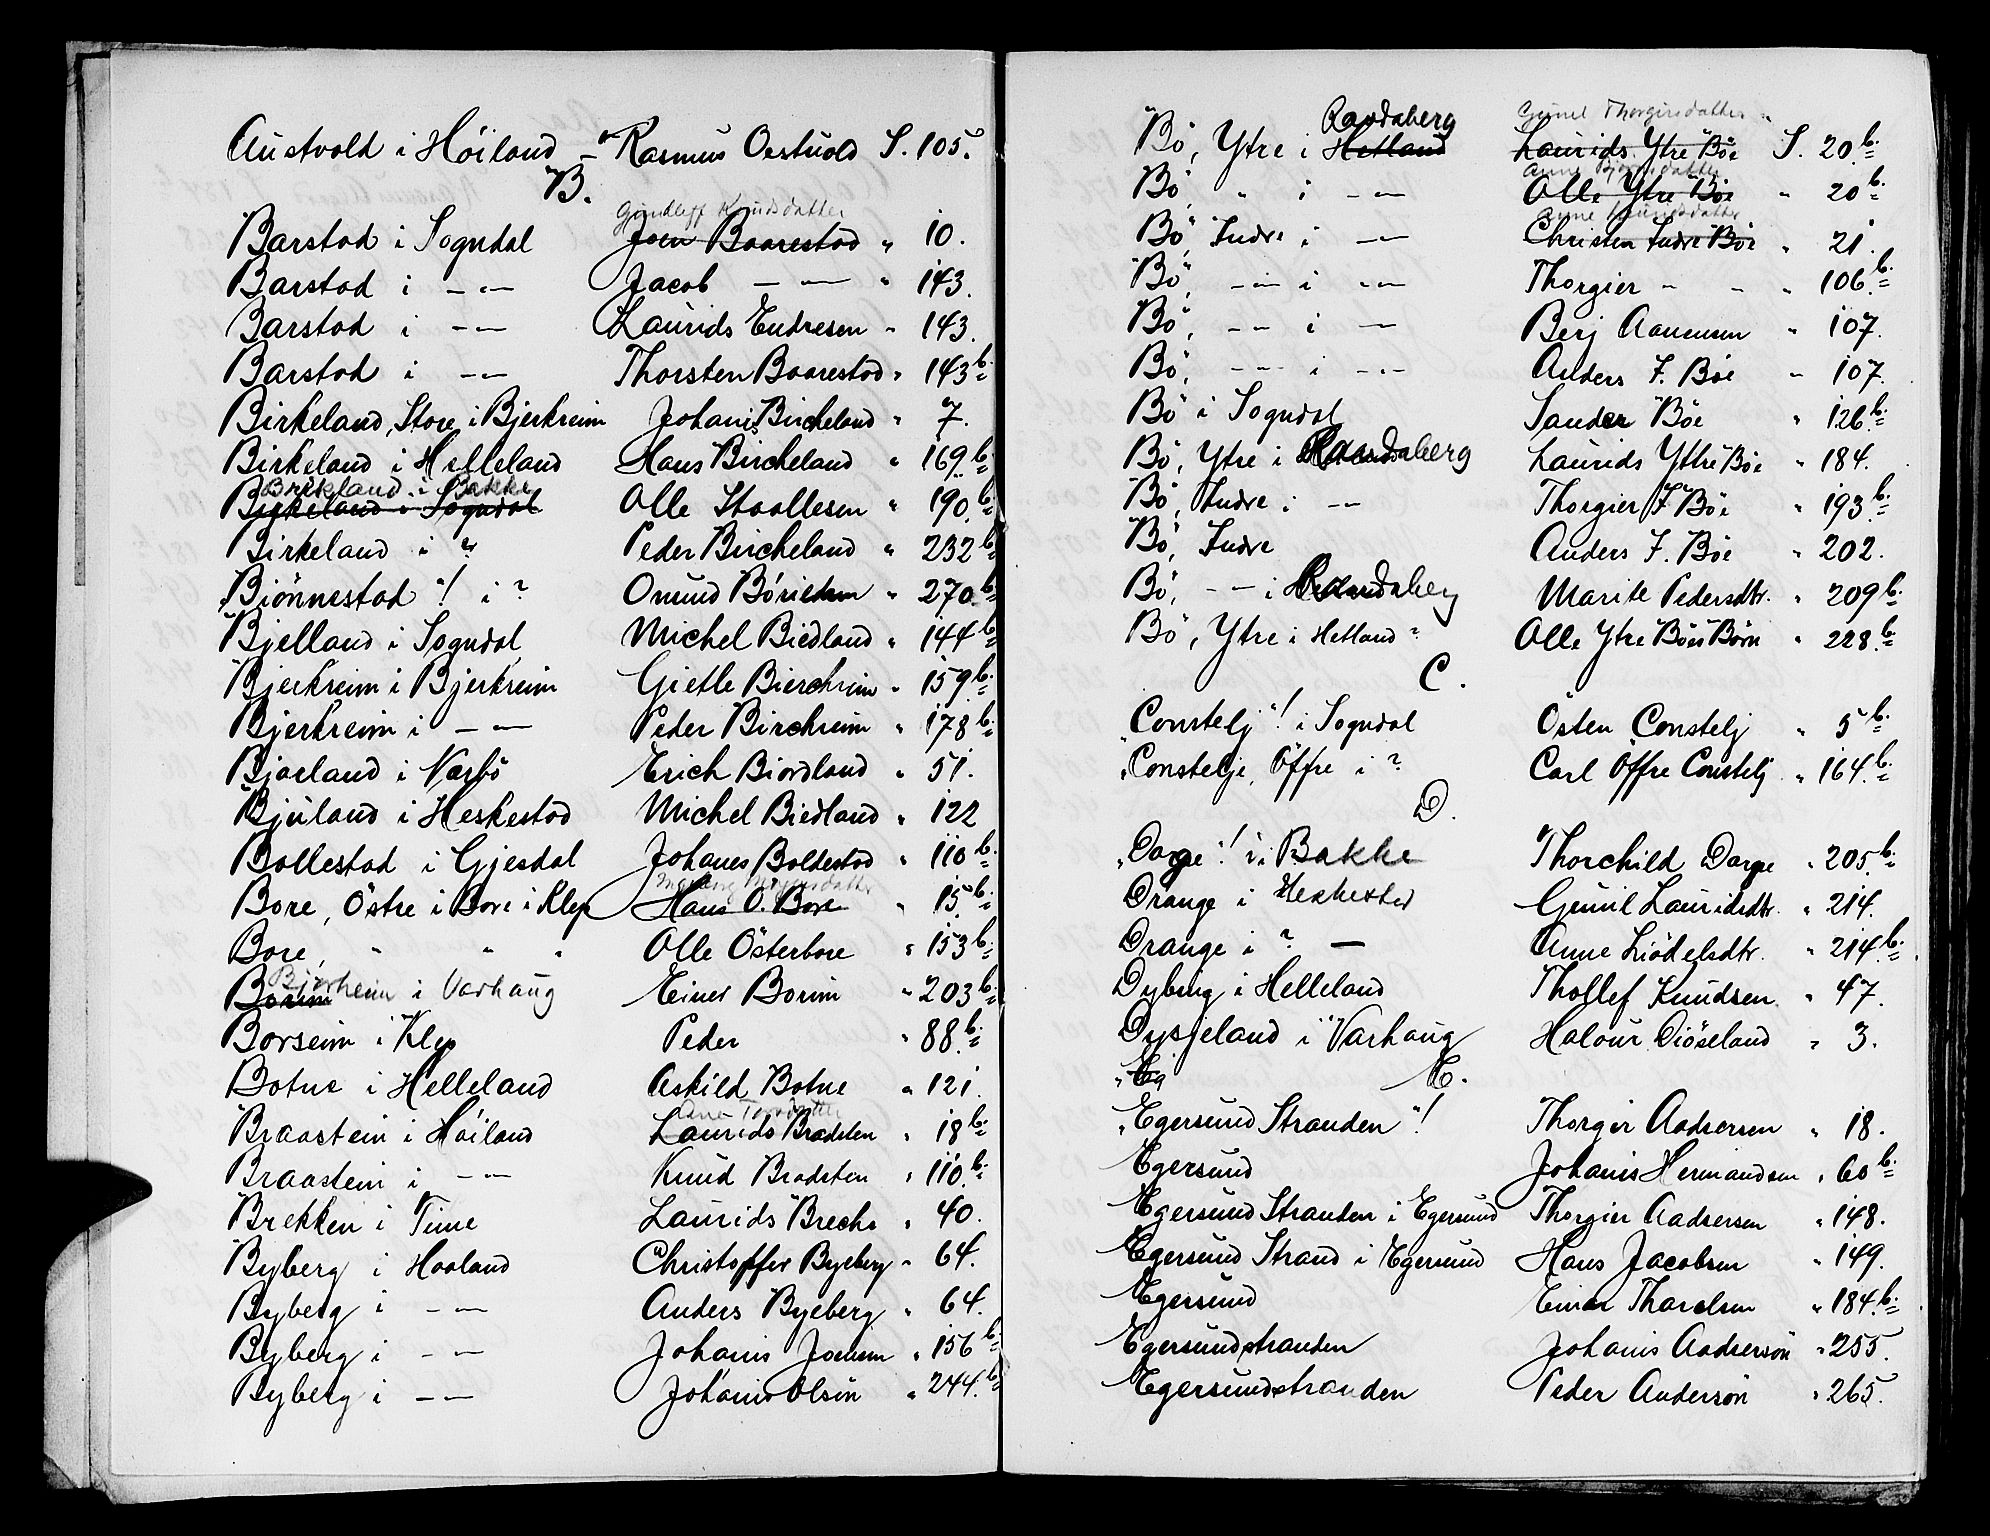 Austvold i Höiland - Rasmus Oestuold S. 105.
B.
Gundleff Knudsdatter
Barstad i Sogndal Joen Baarestad " 10.
Barstad i -"- Jacob -"- " 143.
Barstad i -"- Laurids Endresen " 143.
Barstad i -"- Thorsten Baarestad " 143 b.
Birkeland, Store i Bjerkreim Johanis Bircheland " 7.
Birkeland i Helleland Hans Bircheland " 169 b.
Brikeland i Bakke
Birkeland i Sogndal Olle Staallesen " 190 b.
Birkeland i ? Peder Bircheland " 232 b.
"Biönnestad"! i ? Onund " 270 b.
Bjelland i Sogndal Michel Biedland " 144 b.
Bjerkreim i Bjerkreim Gietle Bierchreim " 159 b.
Bjerkreim i -"- Peder Birchreim " 178 b.
Bjorland i Nærbö Erich Biordland " 51.
Bjuland i Heskestad Michel Biedland " 122
Bollestad i Gjesdal Johanes Boldestad " 110 b.
Ingeborg Mogensdatter
Bore, Östre i Bore i Klep Hans O. Bore " 15 b.
Bore, " " " Olle Österbore " 153 b.
Bjorheim
Borim i Varhaug Einer Borim " 203 b.
Borseim i Klep Peder " 88 b.
Botne i Helleland Askild Botne " 121.
Braastein i Höiland Laurids Bradsten " 18 b.
Braastein i -"- Knud Bradsten " 110 b.
Brekken i Time Laurids Breche " 40.
Byberg i Haaland Christoffer Byeberg " 64.
Byberg i -"- Anders Byeberg " 64.
Byberg i -"- Johanis Joensen " 156 b.
Byberg i -"- Johanis Olsön " 244 b.
Randaberg Gunel Thorgersdatter
Bö, Ytre i Hetland Laurids Ytre Böe S. 20 b.
Anne Bjørnsdatter
Bö, " i -"- Olle Ytre Böe " 20 b.
Anne Lauridsdatter
Bö, Indre i -"- Christen Indre Böe " 21.
Bö, -"- i -"- Thorgier - - " 106 b.
Bö, -"- i -"- Berj Aanensen " 107.
Bö, -"- i -"- Anders I. Böe " 107.
Bö i Sogndal Sander Böe " 126 b.
Bö, Ytre i Randaberg Laurids Yttre Böe " 184.
Bö, Indre i -"- Thorgier I Böe " 193 b.
Bö, Indre Anders I. Böe " 202.
Bö, -"- i Randaberg Marite Pedersdtr. " 209 b.
Bö, Ytre i Hetland ? Olle Ytre Böes Børn " 228 b.
C.
"Constelj"! i Sogndal Östen Constelj " 5 b.
"Constelje, Öffre i ? Carl Öffre Constelj " 164 b.
D.
"Darge"! i Bakke Thorchild Darge " 205 b.
Drange i Heskestad Gunil Lauridsdtr. " 214.
Drange i ? - Anne Liödelsdtr. " 214 b.
Dybing i Helleland Thollef Knudsen " 47.
Dysjeland i Varhaug Halour Diöseland " 3.
"Eg E.
"Egersund Stranden"! Thorger Aadsersen " 18.
Egersund Johanis Hermandsen " 60 b.
Egersund Stranden i Egersund Thorgier Aadsersen " 148.
Egersund Strand i Egersund Hans Jacobsen " 149.
Egersund Einar Tharelsen " 184 b.
Egersundstranden Johanis Aadsersön " 255.
Egersundstranden Peder Andersön " 265.